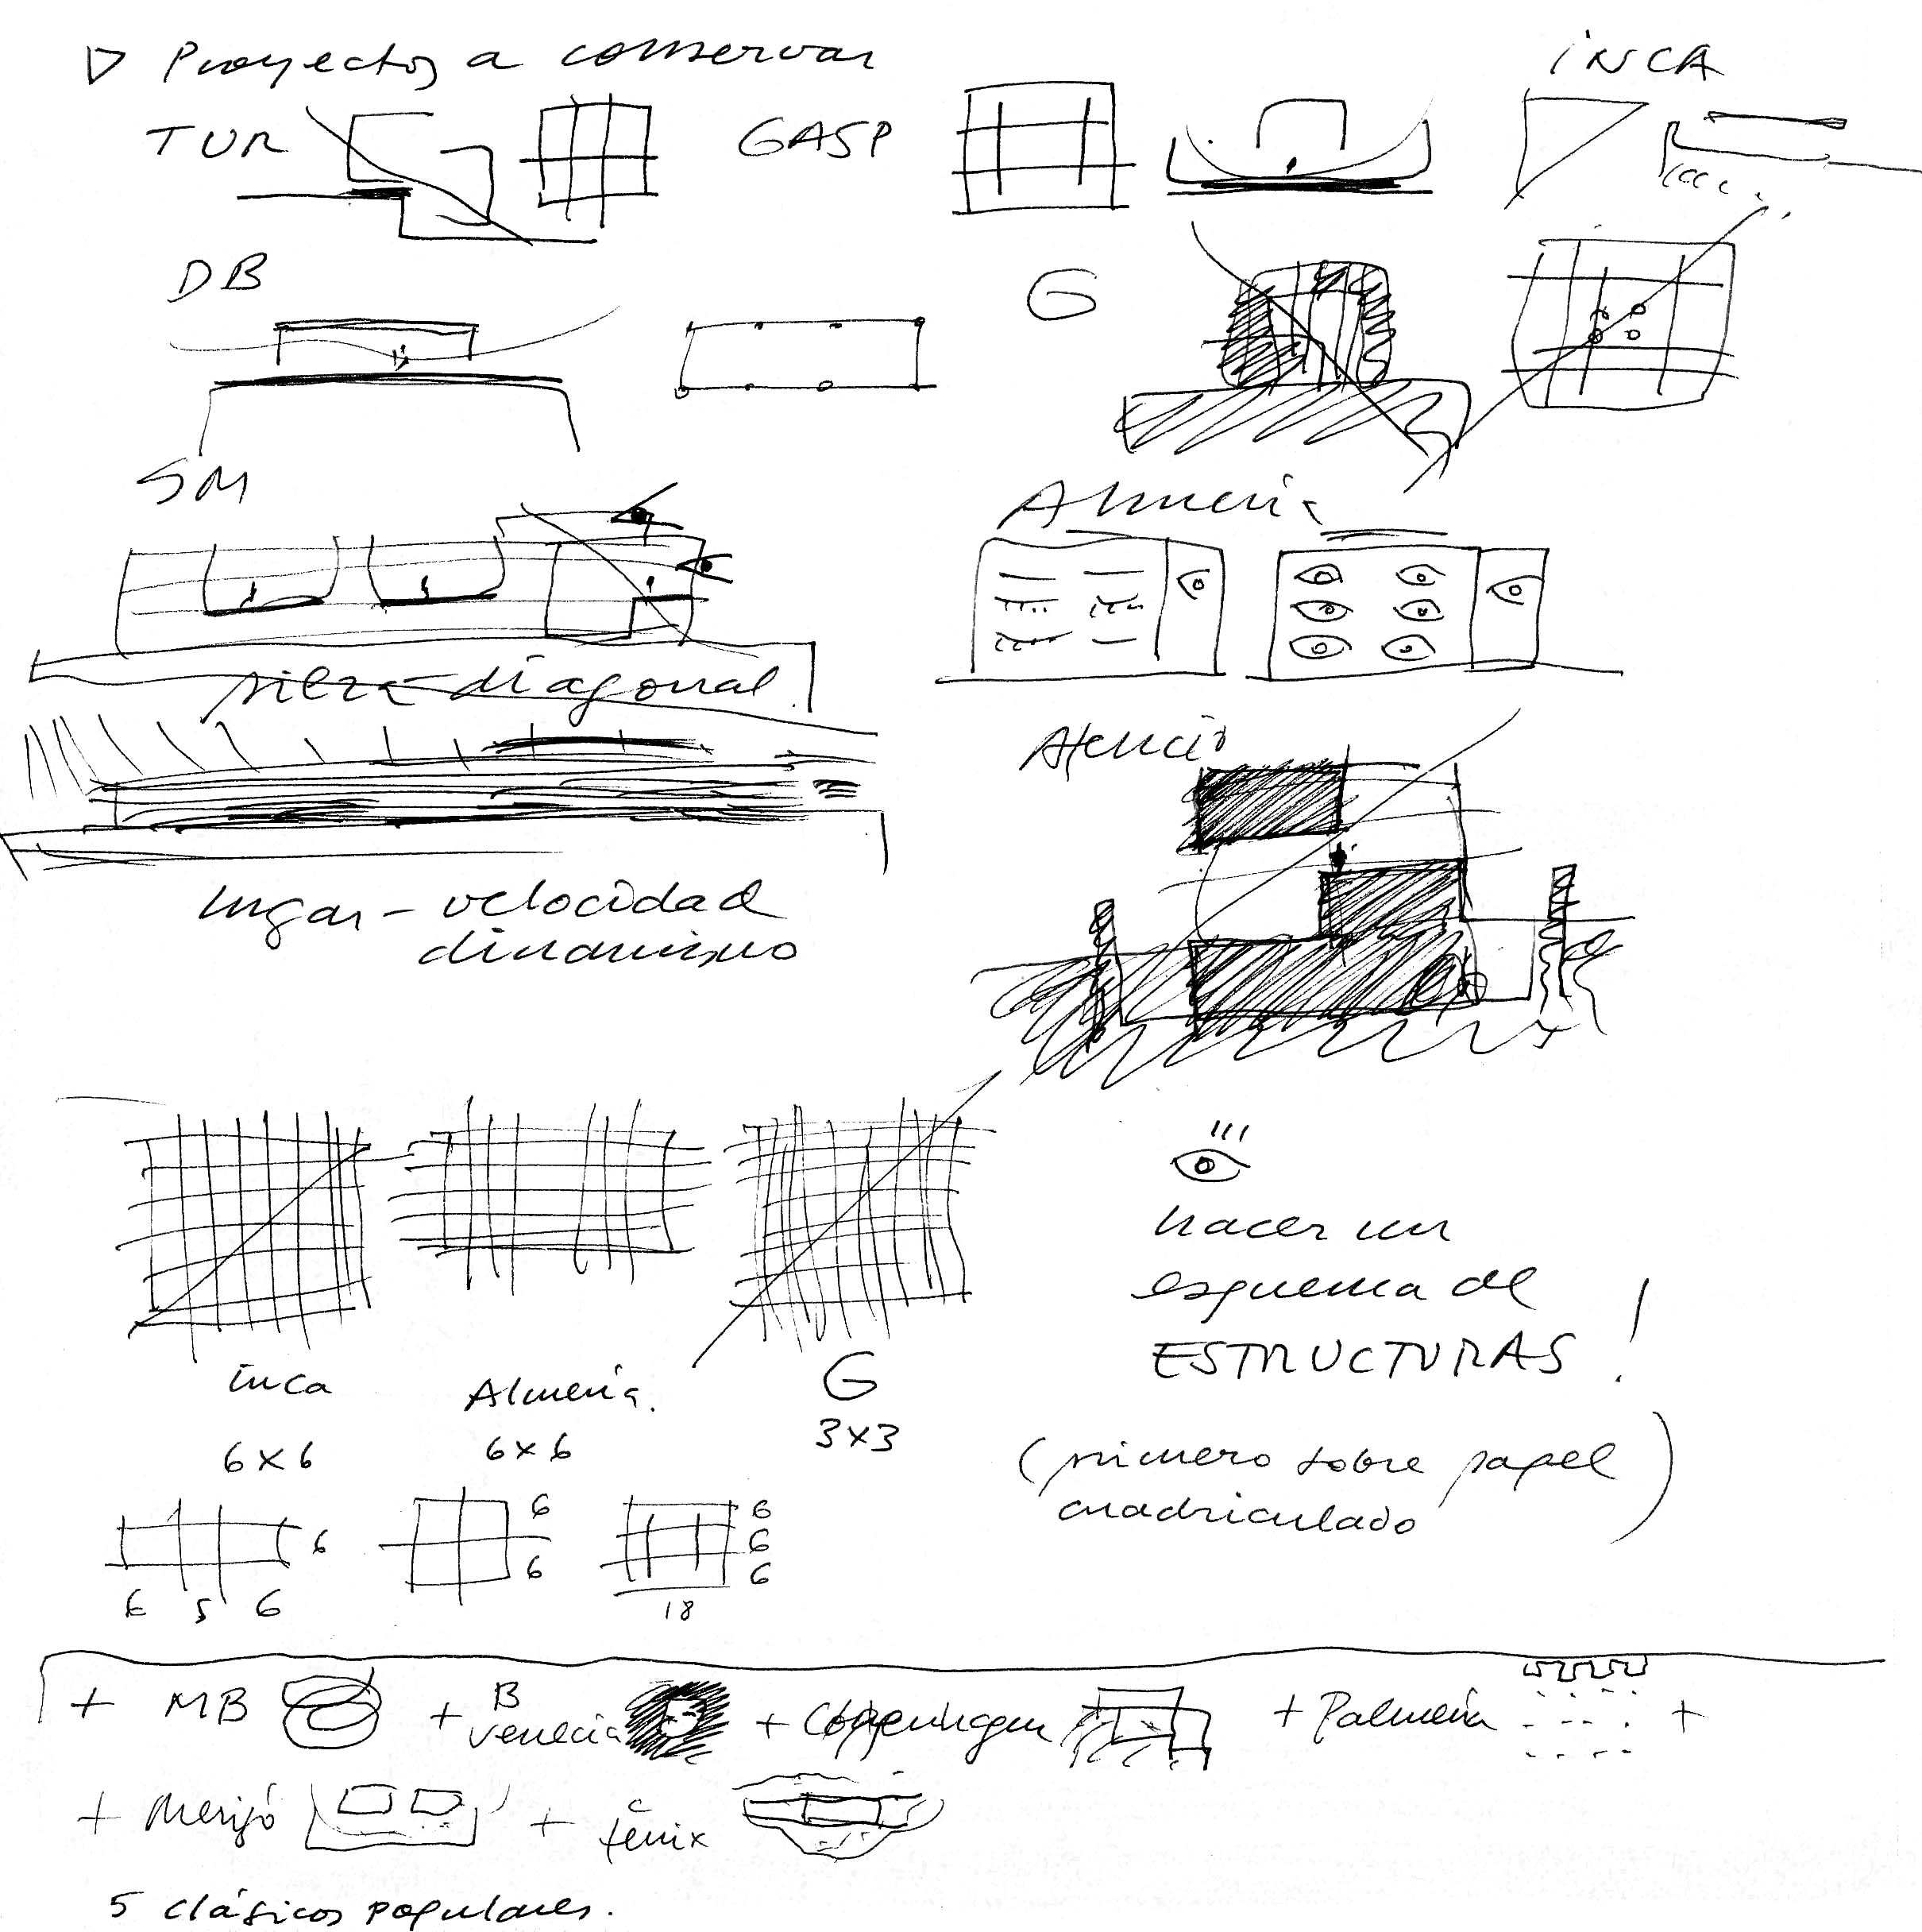 ▷ Proyectos a conservar
INCA
TUR
GASP
DB
G
SM
Almería
diagonal
Asencio
lugar - velocidad
dinamismo
hacer un
esquema de
ESTRUCTURAS !
(primero sobre papel
cuadriculado)
inca
Almería.
G
6x6
6x6
3x3
6
6
6
6
6
6
6 5 6
18
+ MB + B
venecia + Coppenhagen + Palmería +
+ + C
fénix
5 clásicos populares.